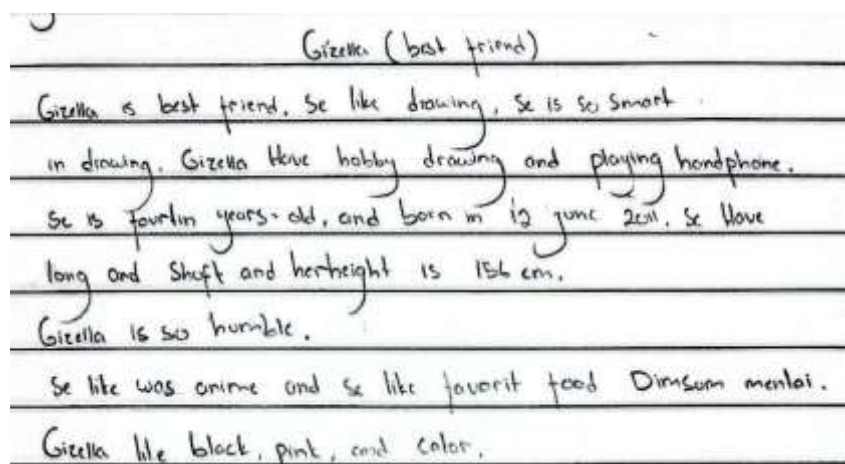 Gizella (best friend)
Gizella is best friend. Se like drawing, se is so smart
in drawing. Gizella Have hobby drawing and playing handphone.
Se is fourtin years-old, and born in 12 june 2011. Se Have
long and Shoft and herheight is 156 cm.
Gizella is so humble.
Se like was anime and se like favorit food Dimsum mentai.
Gizella like black, pink, and color.